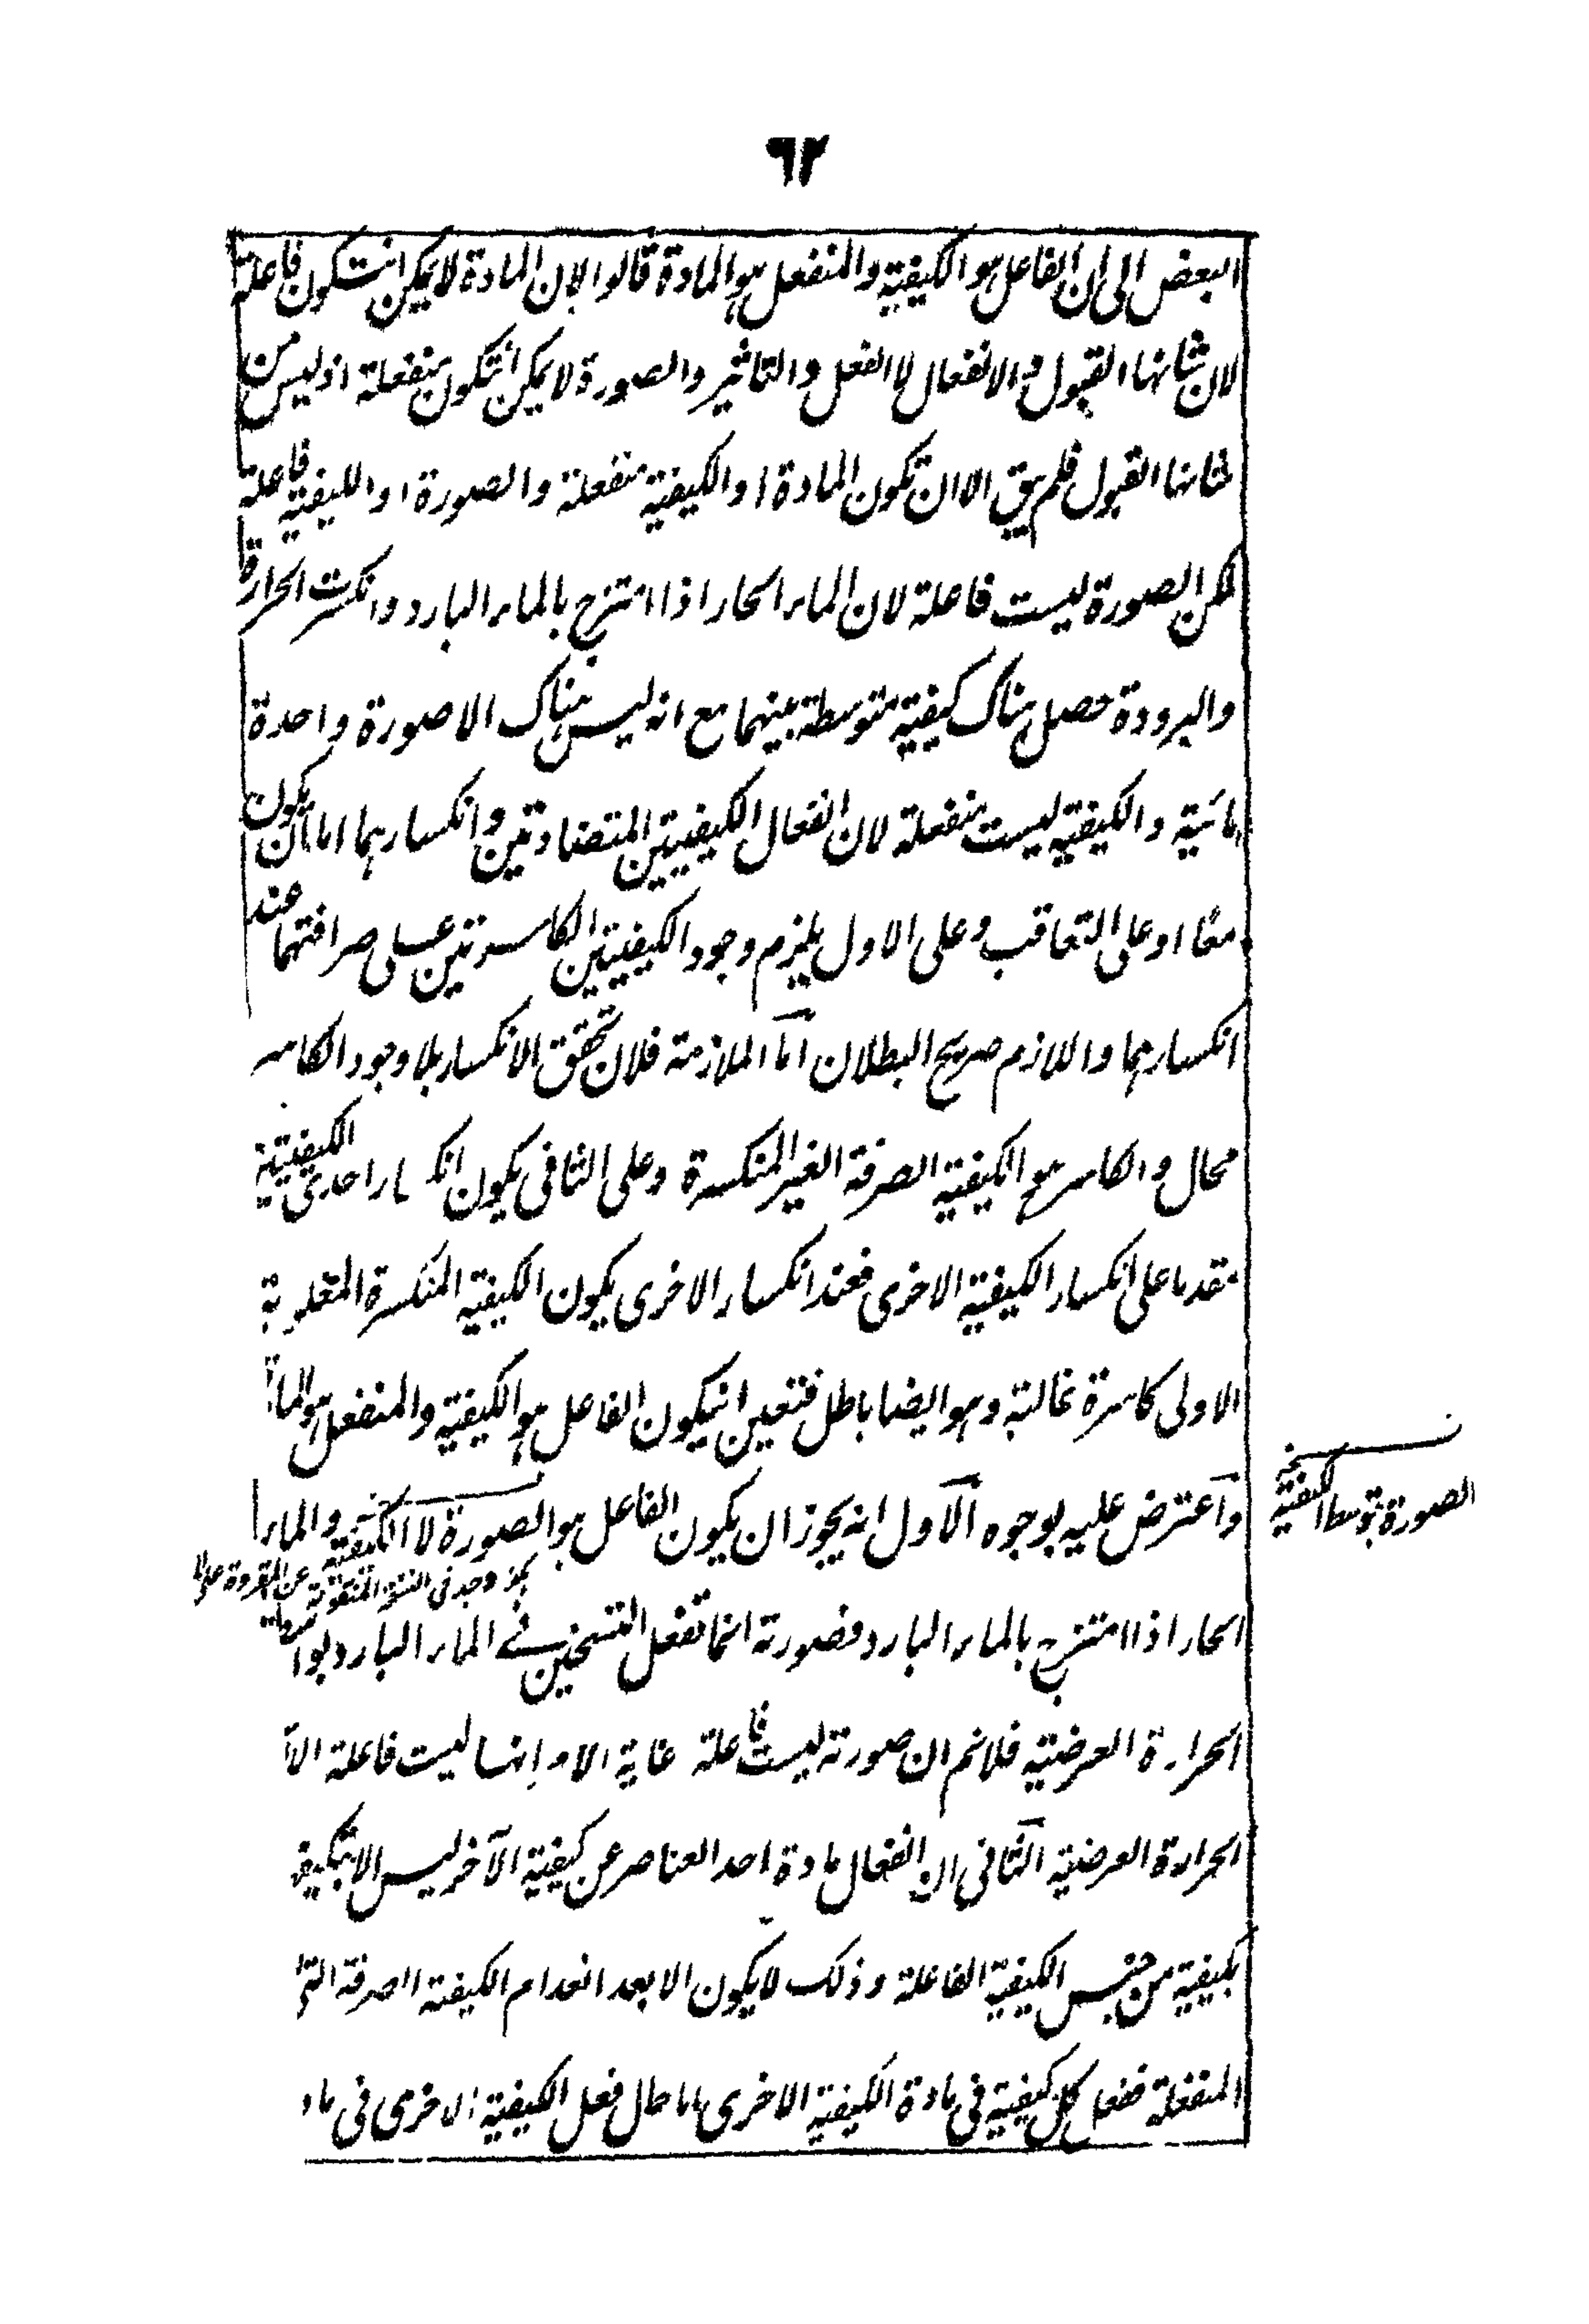 ٦٢
البعض الى ان الفاعل هو الكيفية والمنفعل هو المادة قالوا لان المادة لا يمكن انتكون فاعلة
لان شانها القبول والانفعال لا الفعل والتاثير والصورة لا يمكن انتكون منفعلة اذ ليس من
شانها القبول فلم يبق الا ان تكون المادة او الكيفية منفعلة والصورة او الكيفية فاعلة
لكن الصورة ليست فاعلة لان الماء الحار اذا امتزج بالماء البارد وانكسرت الحرارة
والبرودة حصل هناك كيفية متوسطة بينهما مع انه ليس هناك الا صورة واحدة
مائية والكيفية ليست منفعلة لان انفعال الكيفيتين المتضادتين وانكسارهما اما ان يكون
معًا او على التعاقب وعلى الاول يلزم وجود الكيفيتين الكاسرتين على صرافتهما عند
انكسارهما واللازم صريح البطلان امّا الملازمة فلان تحقق الانكسار بلا وجود الكاسر
محال والكاسر هو الكيفية الصرفة الغير المنكسرة وعلى الثانى يكون انكسار احدى الكيفيتين
مقدما على انكسار الكيفية الاخرى فعند انكسار الاخرى يكون الكيفية المنكسرة المغلوبة
الاولى كاسرة غالبة وهو ايضا باطل فتعين انيكون الفاعل هو الكيفية والمنفعل هو الماد
واعترض عليه بوجوه الاول انه يجوز ان يكون الفاعل هو الصورة لا الكيفية والماء
الصورة بتوسط الكيفية
الحار اذا امتزج بالماء البارد فصورته انما تفعل التسخين فى الماء البارد بواسطة
الحرارة العرضية فلا نم ان صورته ليست فاعلة غاية الامر انها ليست فاعلة الا
الحرارة العرضية الثانى ان انفعال مادة احد العناصر عن كيفية الآخر ليس الا بتكيف
بكيفية من جنس الكيفية الفاعلة وذلك لا يكون الا بعد انعدام الكيفية الصرفة التى
المنفعلة ففعل كل كيفية فى مادة الكيفية الاخرى اما حال فعل الكيفية الاخرى فى ماد